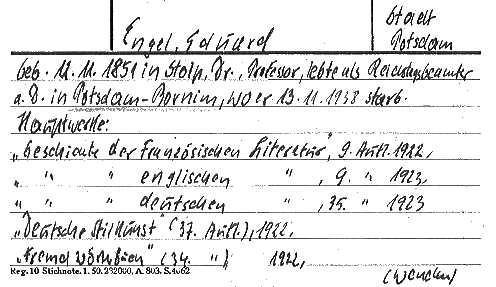 Stadt
Engel, Eduard Potsdam
geb. 12. 11. 1851 in Stolp, Dr., Professor, lebte als Reichstagsbeamter
a. D. in Potsdam-Bornim, wo er 13. 11. 1938 starb.
Hauptwerke:
„Geschichte der Französischen Literatur", 9. Aufl. 1922,
„ „ englischen „ , 9. „ 1923,
„ „ deutschen „ , 35. „ 1923
„Deutsche Stilkunst" (37. Aufl.), 1922,
(34. „) 1922,
Reg. 10 Stichnote. 1. 50. 232000, A. 803. S. 4062
(wenden)